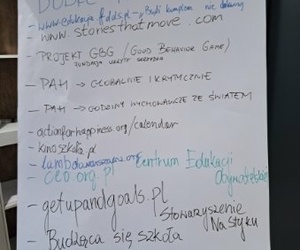 DOBRE
- www.edukacja.fdds.pl →
- www.storiesthatmove.com
- PROJEKT GBG (GOOD BEHAVIOR GAME)
FUNDACJA UKRYTE SKRZYDŁA
- PAH → GLOBALNIE I KRYTYCZNIE
- PAH → GODZINY WYCHOWAWCZE ZE ŚWIATEM
- actionforhappiness.org/calendar
- kinoszkoła.pl
- ceo.org.pl Centrum Edukacji
Obywatelskiej
- getupandgoals.pl
Stowarzyszenie
Na Styku
- Budząca się szkoła